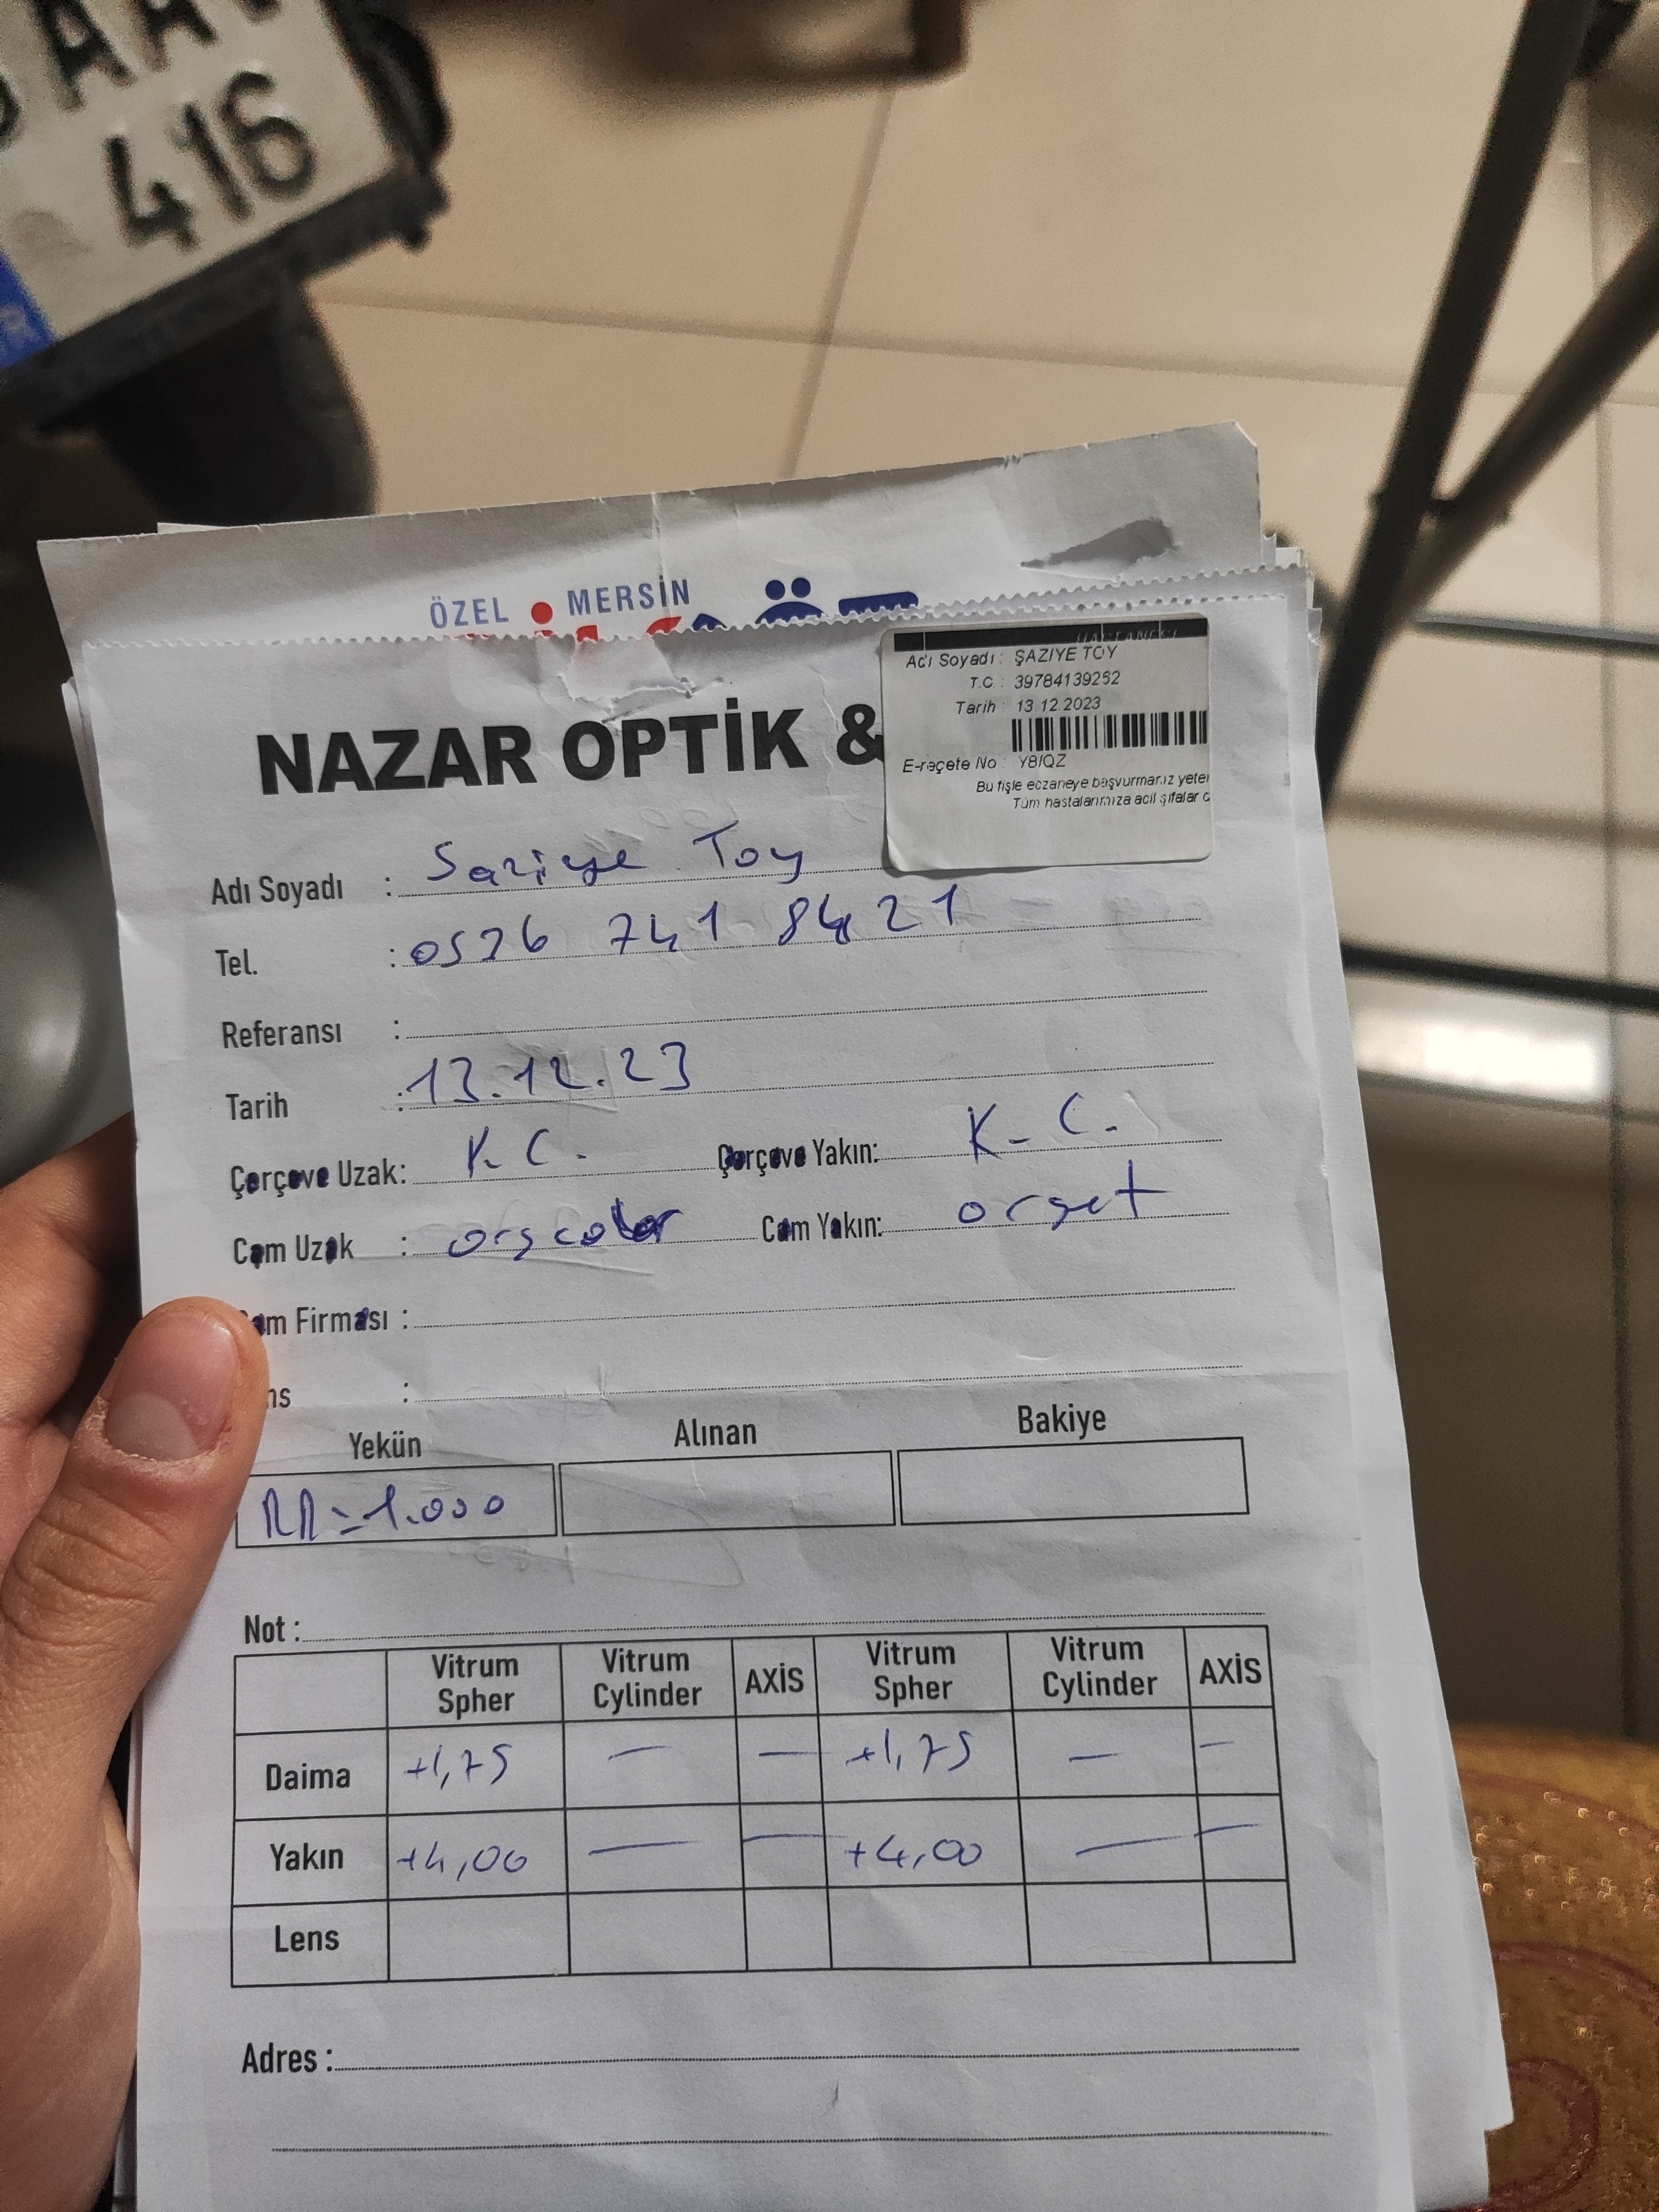 AA
416
ÖZEL MERSİN
HASTANESİ
Adı Soyadı : ŞAZİYE TOY
T.C. : 39784139252
Tarih : 13.12.2023
E-reçete No : Y8IQZ
Bu fişle eczaneye başvurmanız yeter
Tüm hastalarımıza acil şifalar d
NAZAR OPTİK &
Adı Soyadı : Saziye Toy
Tel. : 0536 741 84 21
Referansı :
Tarih : 13.12.23
Çerçeve Uzak: K.C. Çerçeve Yakın: K-C.
Cam Uzak : orgcolor Cam Yakın: orget
Cam Firması :
ns :
Yekün Alınan Bakiye
=1.000
Not :
Vitrum Spher Vitrum Cylinder AXİS Vitrum Spher Vitrum Cylinder AXİS
Daima +1,75 — — +1,75 — —
Yakın +4,00 — — +4,00 — —
Lens
Adres :